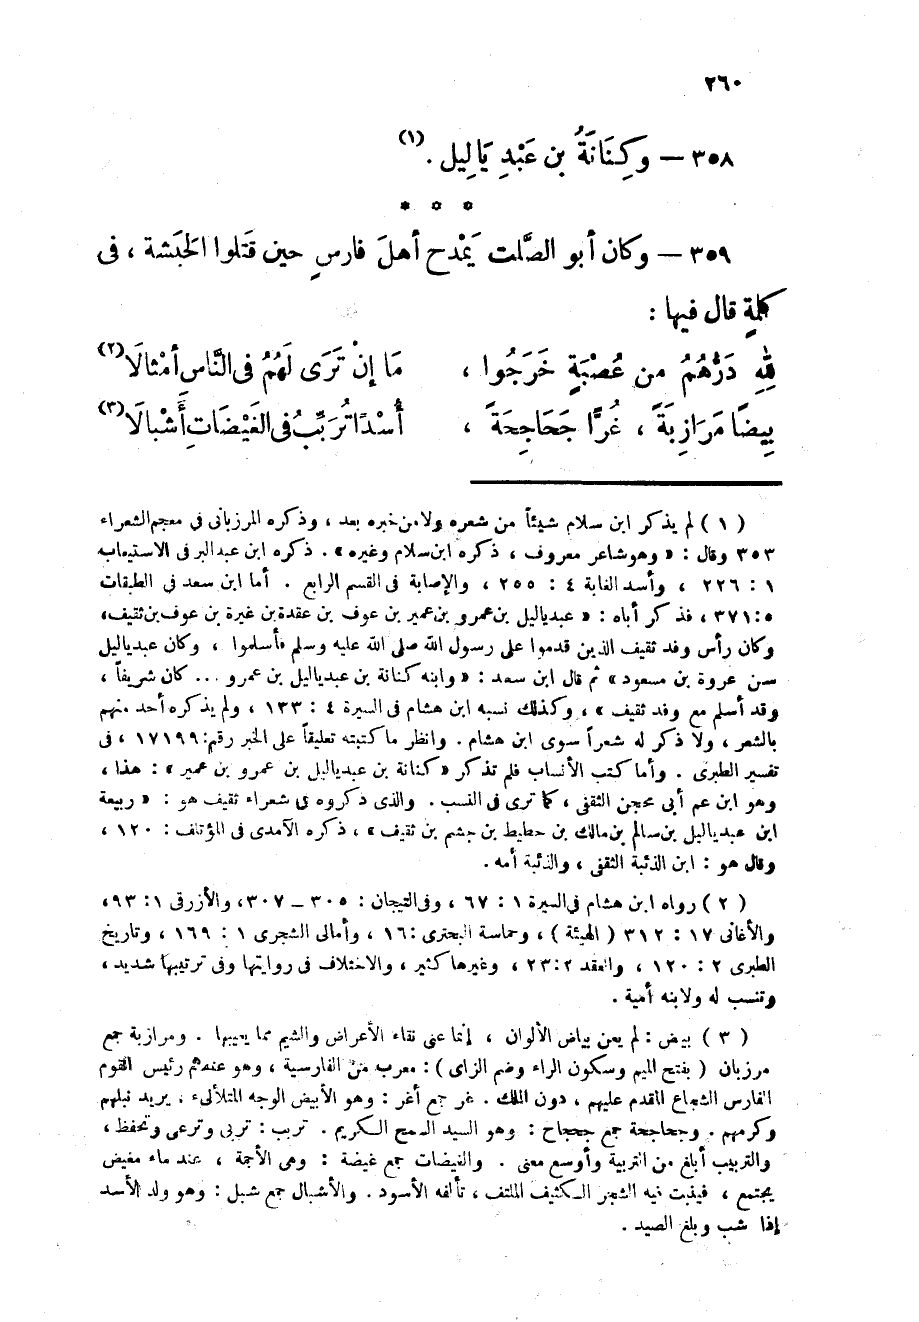 ٢٦٠
٣٥٨ — وكِنَانَةُ بن عَبْدِ يَالِيل . (١)
* * *
٣٥٩ — وكان أبو الصَّلت يَمْدح أهلَ فارسٍ حين قَتَلوا الحَبَشة ، فى
كلمةٍ قال فيها :
لِلّٰهِ دَرُّهُمُ من عُصْبَةٍ خَرَجُوا ، مَا إنْ تَرَى لَهُمُ فى النَّاسِ أمْثالَا (٢)
بِيضًا مَرَازِبَةً ، غُرًّا جَحَاجِحَةً ، أُسْدًا تُرَبِّبُ فى الغَيْضَاتِ أَشْبالَا (٣)
( ١ ) لم يذكر ابن سلام شيئاً من شعره ولا من خبره بعد ، وذكره المرزبانى فى معجم الشعراء
٣٥٣ وقال : « وهو شاعر معروف ، ذكره ابن سلام وغيره » . ذكره ابن عبد البر فى الاستيعاب
١ : ٢٢٦ ، وأسد الغابة ٤ : ٢٥٥ ، والإصابة فى القسم الرابع . أما ابن سعد فى الطبقات
٥ : ٣٧١ ، فذكر أباه : « عبدياليل بن عمرو بن عمير بن عوف بن عقدة بن غيرة بن عوف بن ثقيف ،
وكان رأس وفد ثقيف الذين قدموا على رسول الله صلى الله عليه وسلم فأسلموا ، وكان عبدياليل
سن عروة بن مسعود » ثم قال ابن سعد : « وابنه كنانة بن عبدياليل بن عمرو ... كان شريفاً ،
وقد أسلم مع وفد ثقيف » ، وكذلك نسبه ابن هشام فى السيرة ٤ : ١٣٣ ، ولم يذكره أحد منهم
بالشعر ، ولا ذكر له شعراً سوى ابن هشام . وانظر ما كتبته تعليقاً على الخبر رقم : ١٧١٩٩ ، فى
تفسير الطبرى . وأما كتب الأنساب فلم تذكر « كنانة بن عبدياليل بن عمرو بن عمير » : هذا ،
وهو ابن عم أبى محجن الثقفى ، كما ترى فى النسب . والذى ذكروه فى شعراء ثقيف هو : « ربيعة
ابن عبدياليل بن سالم بن مالك بن حطيط بن جشم بن ثقيف » ، ذكره الآمدى فى المؤتلف : ١٢٠ ،
وقال هو : ابن الذئبة الثقفى ، والذئبة أمه .
( ٢ ) رواه ابن هشام فى السيرة ١ : ٦٧ ، وفى التيجان : ٣٠٥ – ٣٠٧ ، والأزرقى ١ : ٩٣ ،
والأغانى ١٧ : ٣١٢ ( الهيئة ) ، وحماسة البحترى : ١٦ ، وأمالى الشجرى ١ : ١٦٩ ، وتاريخ
الطبرى ٢ : ١٢٠ ، والعقد ٢ : ٢٣ ، وغيرها كثير ، والاختلاف فى روايتها وفى ترتيبها شديد ،
وتنسب له ولابنه أمية .
( ٣ ) بيض : لم يعن بياض الألوان ، إنما عنى نقاء الأعراض والشيم مما يعيبها . ومرازبة جمع
مرزبان ( بفتح الميم وسكون الراء وضم الزاى ) : معرب من الفارسية ، وهو عندهم رئيس القوم
الفارس الشجاع المقدم عليهم ، دون الملك . غر جمع أغر : وهو الأبيض الوجه المتلألىء ، يريد نبلهم
وكرمهم . وجحاجحة جمع جحجاح : وهو السيد السمح الكريم . تربب : تربى وترعى وتحفظ ،
والتربيب أبلغ من التربية وأوسع معنى . والغيضات جمع غيضة : وهى الأجمة ، عند ماء مغيض
يجتمع ، فينبت فيه الشجر الكثيف الملتف ، تألفه الأسود . والأشبال جمع شبل : وهو ولد الأسد
إذا شب وبلغ الصيد .